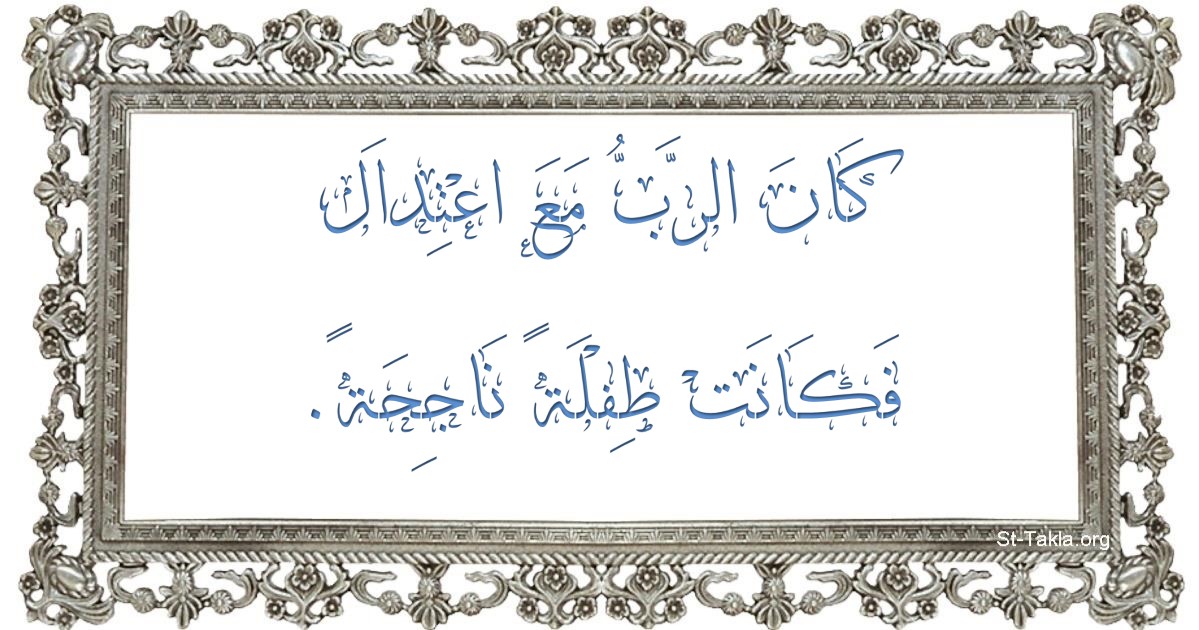 كَانَ الرَّبُّ مَعَ اعْتِدَالَ
فَكَانَتْ طِفْلَةً نَاجِحَةً.
St-Takla.org